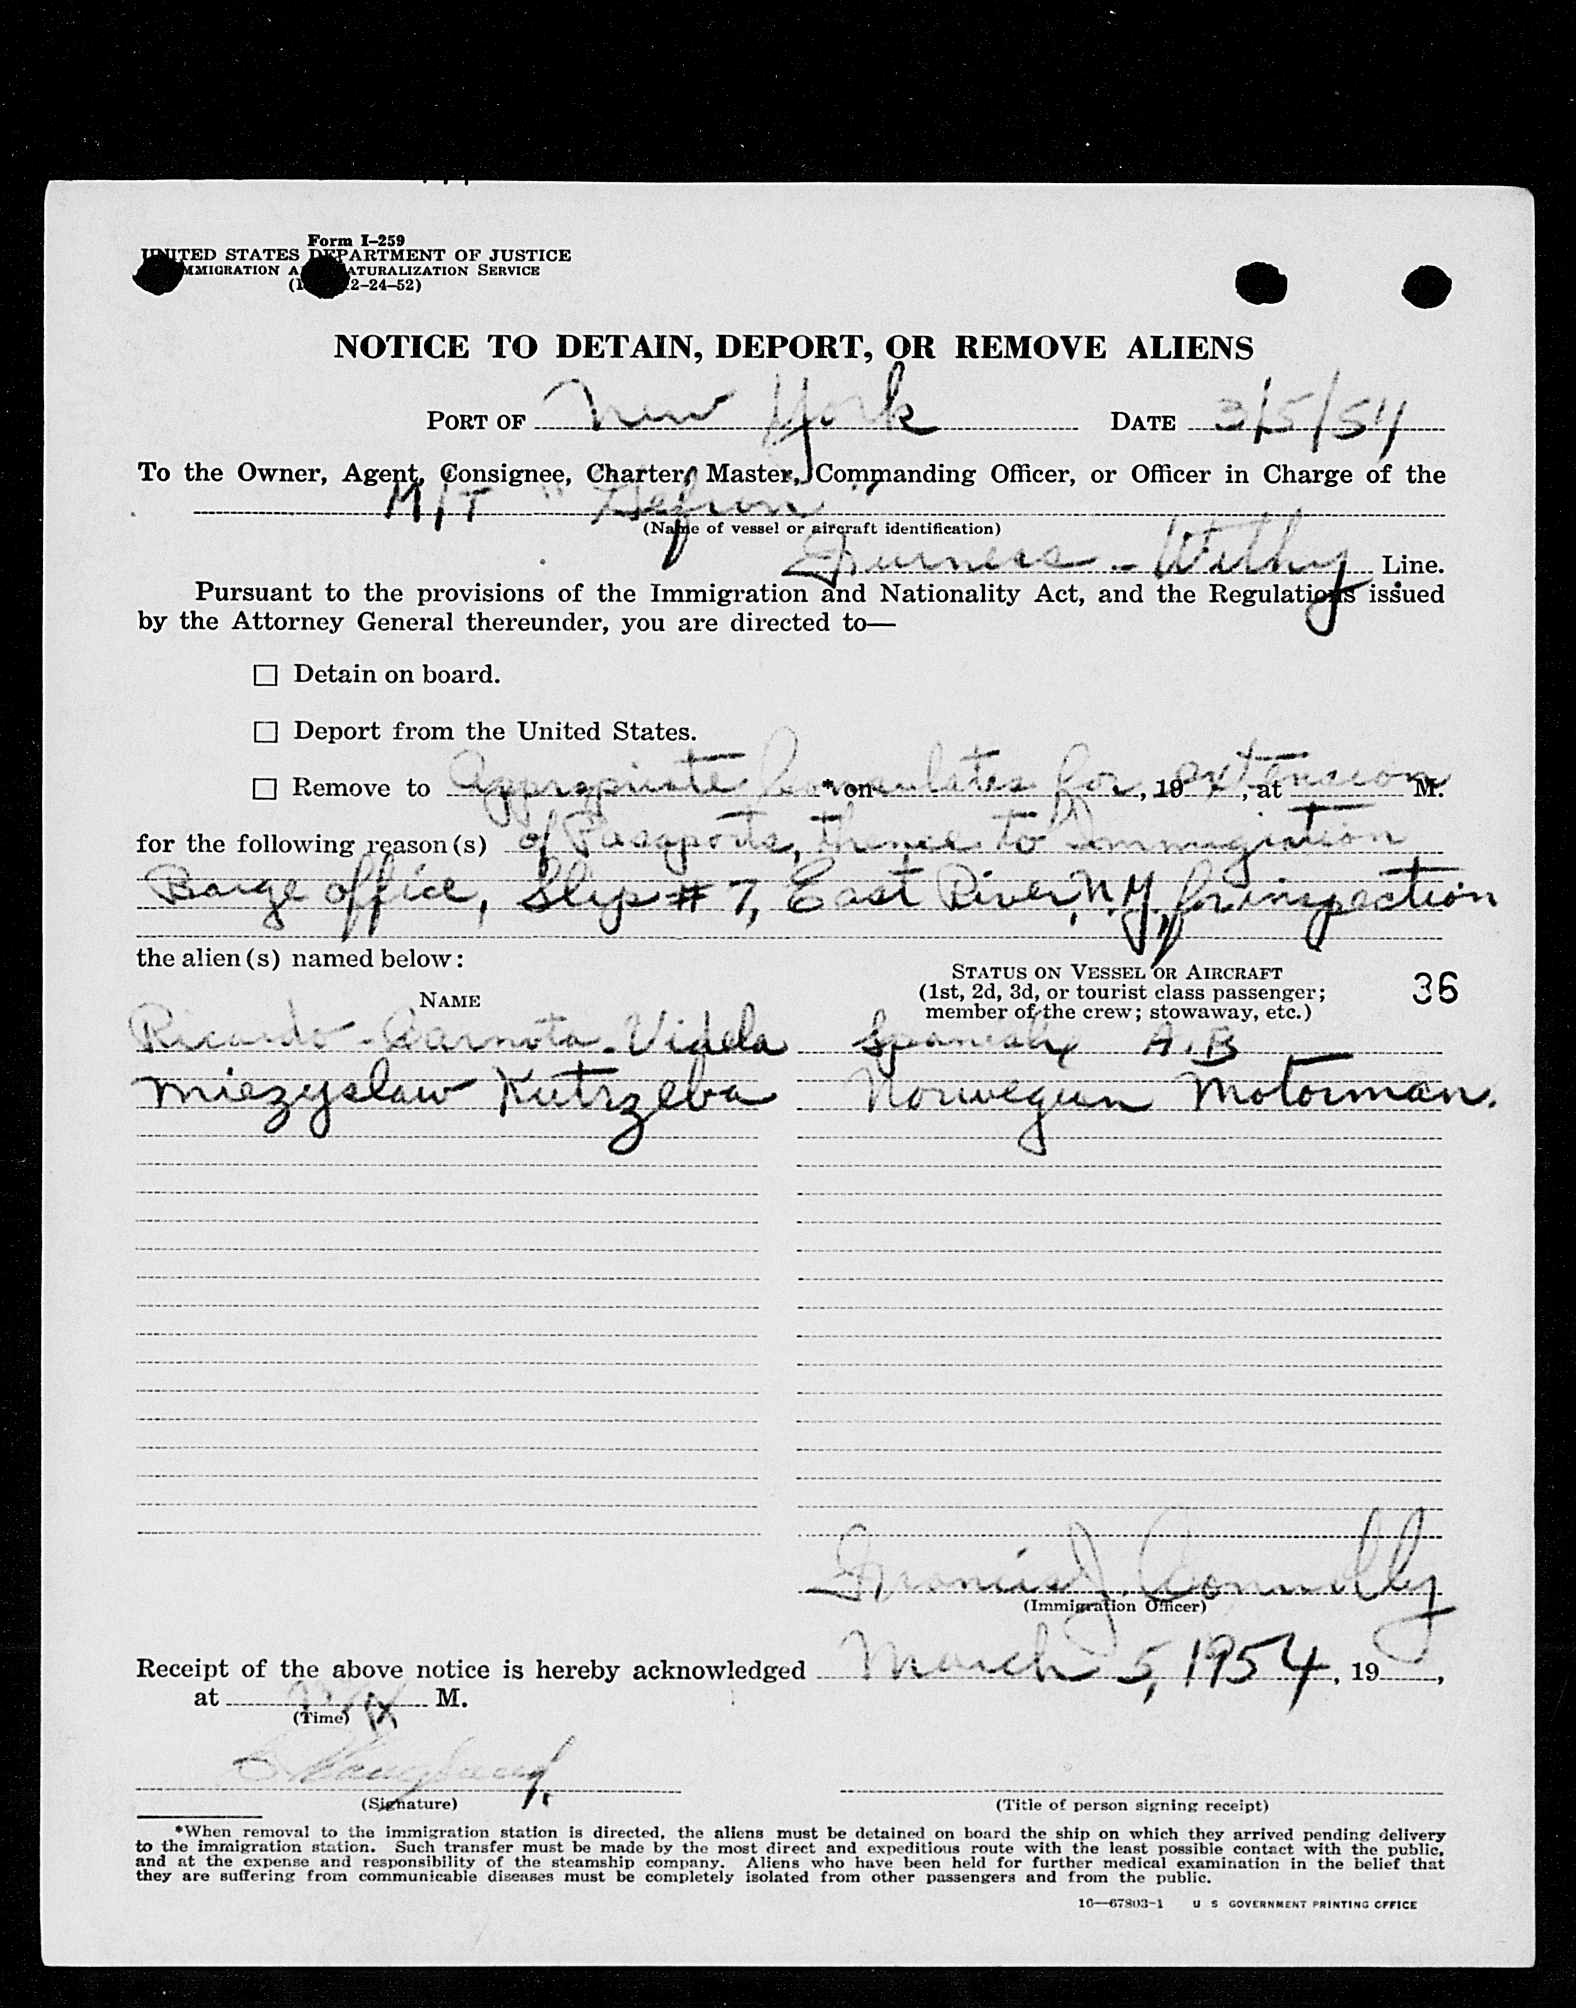 Form I-259
UNITED STATES DEPARTMENT OF JUSTICE
IMMIGRATION AND NATURALIZATION SERVICE
2-24-52)
NOTICE TO DETAIN, DEPORT, OR REMOVE ALIENS
PORT OF New York DATE 3/5/54
To the Owner, Agent, Consignee, Charter, Master, Commanding Officer, or Officer in Charge of the
M/T "Gefion"
(Name of vessel or aircraft identification)
Furness-Withy Line.
Pursuant to the provisions of the Immigration and Nationality Act, and the Regulations issued
by the Attorney General thereunder, you are directed to—
☐ Detain on board.
☐ Deport from the United States.
☐ Remove to Appropriate Consulates for extension * on , 19 , at M.
for the following reason(s) of Passports, thence to Immigration
Barge office, Slip # 7, East River, N.Y, for inspection
the alien(s) named below:
STATUS ON VESSEL OR AIRCRAFT
(1st, 2d, 3d, or tourist class passenger;
member of the crew; stowaway, etc.)
36
NAME
Ricardo-Carnota-Videla Spanish A.B
Miezyslaw Kutrzeba Norwegian Motorman.
Francis J. Connolly
(Immigration Officer)
Receipt of the above notice is hereby acknowledged March 5, 1954, 19 ,
at M.
(Time)
(Signature)
(Title of person signing receipt)
*When removal to the immigration station is directed, the aliens must be detained on board the ship on which they arrived pending delivery
to the immigration station. Such transfer must be made by the most direct and expeditious route with the least possible contact with the public,
and at the expense and responsibility of the steamship company. Aliens who have been held for further medical examination in the belief that
they are suffering from communicable diseases must be completely isolated from other passengers and from the public.
16—67803-1 U S GOVERNMENT PRINTING OFFICE